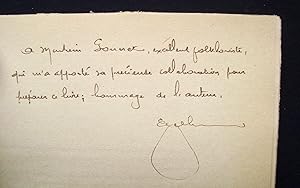 a Monsieur Sonnet, excellent folkloriste,
qui m'a apporté sa précieuse collaboration pour
préparer ce livre; hommage de l'auteur.